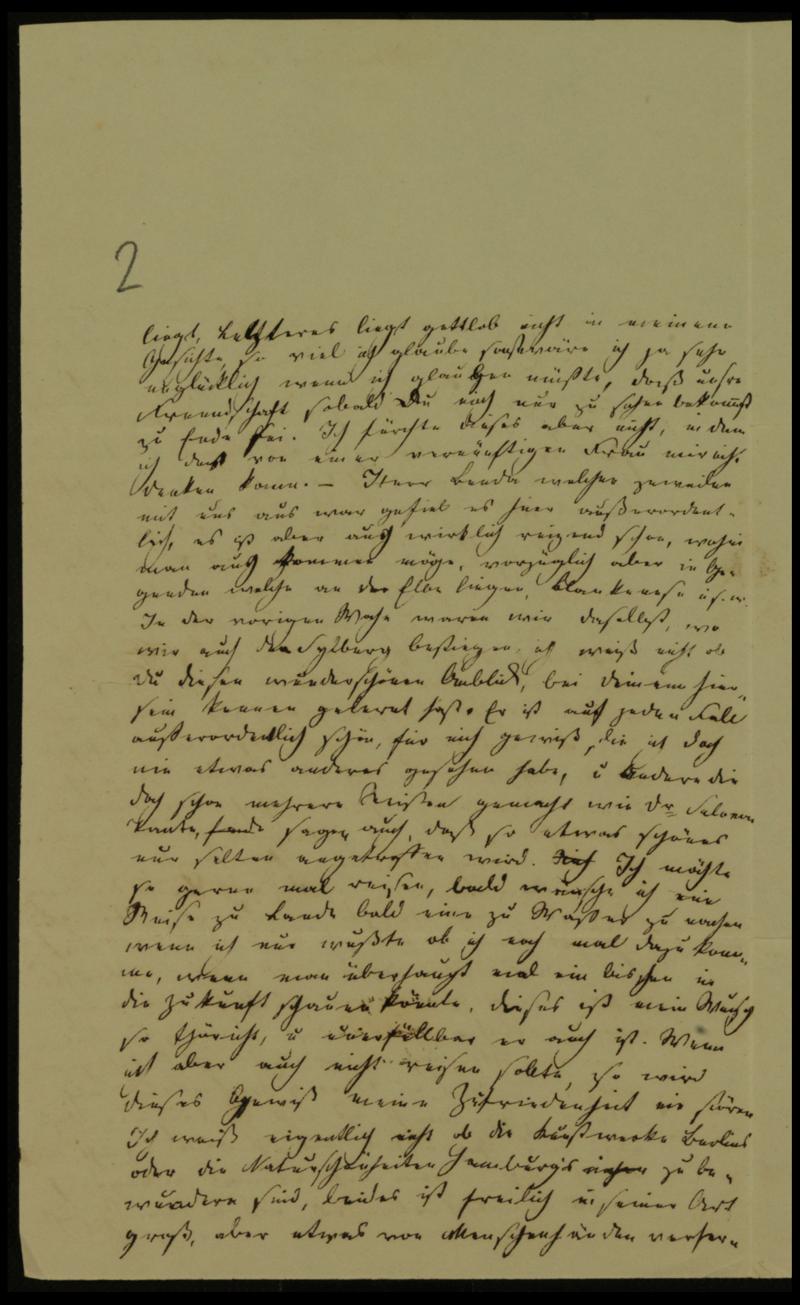 2
liegt, letzteres liegt gottlob nicht in meinem
Gesichte, so viel ich glaube sonst wäre ich ja sehr
unglücklich wenn ich glauben müßte, daß unsre
Freundschaft sobald Du mich nur zu sehen bekommst
zu Ende sei. Ich fürchte dieses aber nicht, in dem
ich das von einer vernünftigen Frau mir nicht
denken kann. – Herr Benda welcher zuweilen
mit uns aus war gefiel es hier außerordent-
lich, es ist aber auch wirklich reizend schön, wohin
man auch kommen möge, vorzüglich aber in Ge-
genden welche an der Elbe liegen, Blankenese u.s.w.
In der vorigen Woche waren wir daselbst, wo
wir auch den Sylberg bestiegen, ich weiß nicht ob
Du diesen wunderschönen Anblick, bei deinem hier-
sein kennen gelernt hast. Er ist auf jeden Fall
außerordentlich schön, für mich gewiß, die ich doch
nie etwas anderes gesehen habe, u andere die
doch schon mehrere Reisen gemacht wie Dr
sagen auch, daß so etwas schönes
nur selten angetroffen wird. Ich möchte
so gerne mal reisen, bald wünsche ich eine
Reise zu Lande bald eine zu Wasser zu machen
wenn ich nur wußte ob ich noch mal dazu kom-
me, wenn man überhaupt mal ein bischen in
die Zukunft schauen könnte, dieses ist mein Wunsch
so thöricht, u unerfüllbar er auch ist. Wenn
ich aber auch nicht reisen sollte, so wird
dieses gewiß meine Zufriedenheit nie stören
Ich weiß eigentlich nicht ob die Kunstwerke Berlins
oder die Naturschönheiten Hamburgs zu be-
wundern sind, beides ist freilich in seiner Art
groß, aber etwas von Menschenhänden verfer-